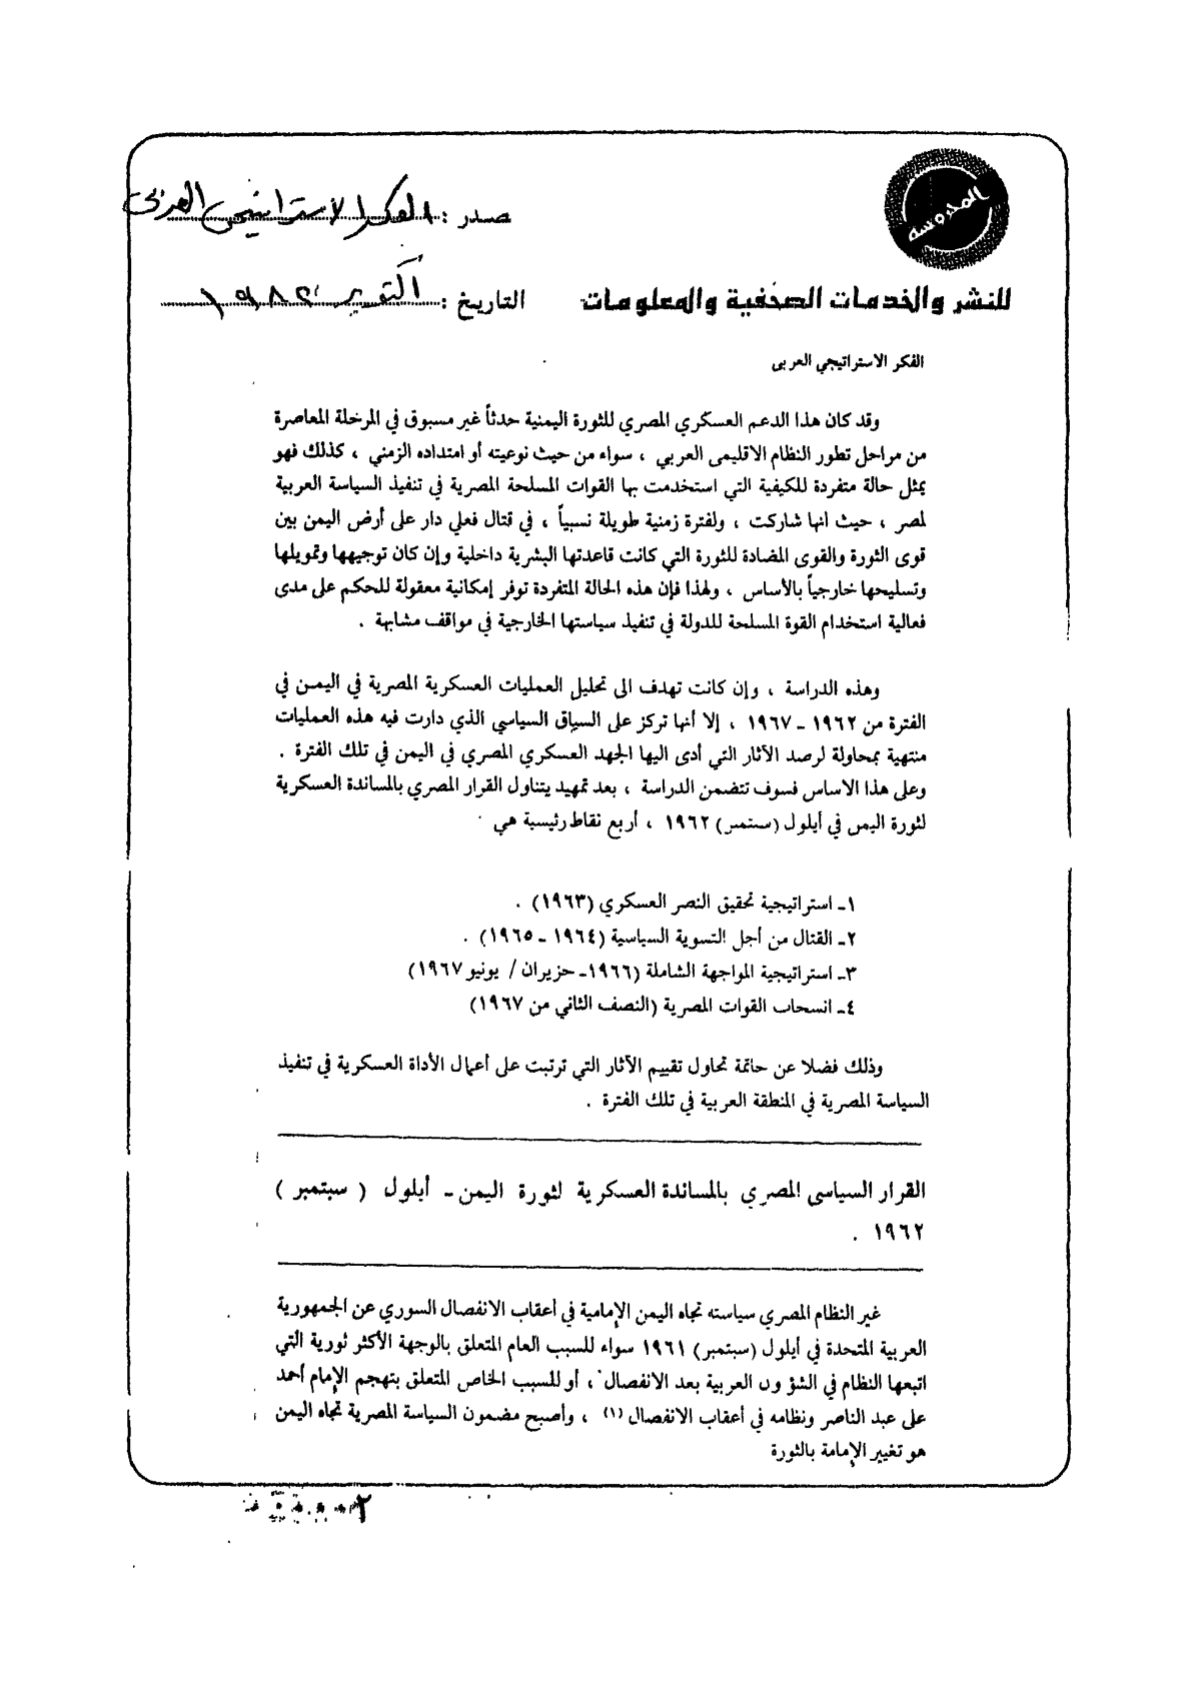 المحروسة
صدر : الفكر الاستراتيجى العربى
للنشر والخدمات الصحفية والمعلومات
التاريخ : أكتوبر ١٩٨٢
الفكر الاستراتيجي العربى
وقد كان هذا الدعم العسكري المصري للثورة اليمنية حدثاً غير مسبوق في المرحلة المعاصرة
من مراحل تطور النظام الاقليمى العربي ، سواء من حيث نوعيته أو امتداده الزمني ، كذلك فهو
يمثل حالة متفردة للكيفية التي استخدمت بها القوات المسلحة المصرية في تنفيذ السياسة العربية
لمصر ، حيث انها شاركت ، ولفترة زمنية طويلة نسبياً ، في قتال فعلي دار على أرض اليمن بين
قوى الثورة والقوى المضادة للثورة التي كانت قاعدتها البشرية داخلية وإن كان توجيهها وتمويلها
وتسليحها خارجياً بالأساس ، ولهذا فإن هذه الحالة المتفردة توفر إمكانية معقولة للحكم على مدى
فعالية استخدام القوة المسلحة للدولة في تنفيذ سياستها الخارجية في مواقف مشابهة .
وهذه الدراسة ، وإن كانت تهدف الى تحليل العمليات العسكرية المصرية في اليمن في
الفترة من ١٩٦٢ - ١٩٦٧ ، إلا أنها تركز على السياق السياسي الذي دارت فيه هذه العمليات
منتهية بمحاولة لرصد الآثار التي أدى اليها الجهد العسكري المصري في اليمن في تلك الفترة .
وعلى هذا الاساس فسوف تتضمن الدراسة ، بعد تمهيد يتناول القرار المصري بالمساندة العسكرية
لثورة اليمن في أيلول (سبتمبر) ١٩٦٢ ، أربع نقاط رئيسية هي
١- استراتيجية تحقيق النصر العسكري (١٩٦٣) .
٢- القتال من أجل التسوية السياسية (١٩٦٤ - ١٩٦٥) .
٣- استراتيجية المواجهة الشاملة (١٩٦٦- حزيران / يونيو ١٩٦٧)
٤- انسحاب القوات المصرية (النصف الثاني من ١٩٦٧)
وذلك فضلا عن خاتمة تحاول تقييم الآثار التي ترتبت على أعمال الأداة العسكرية في تنفيذ
السياسة المصرية في المنطقة العربية في تلك الفترة .
القرار السياسى المصري بالمساندة العسكرية لثورة اليمن - أيلول ( سبتمبر )
١٩٦٢ .
غير النظام المصري سياسته تجاه اليمن الإمامية في أعقاب الانفصال السوري عن الجمهورية
العربية المتحدة في أيلول (سبتمبر) ١٩٦١ سواء للسبب العام المتعلق بالوجهة الأكثر ثورية التي
اتبعها النظام في الشؤون العربية بعد الانفصال ، أو للسبب الخاص المتعلق بتهجم الإمام أحمد
على عبد الناصر ونظامه في أعقاب الانفصال (١) ، وأصبح مضمون السياسة المصرية تجاه اليمن
هو تغيير الإمامة بالثورة